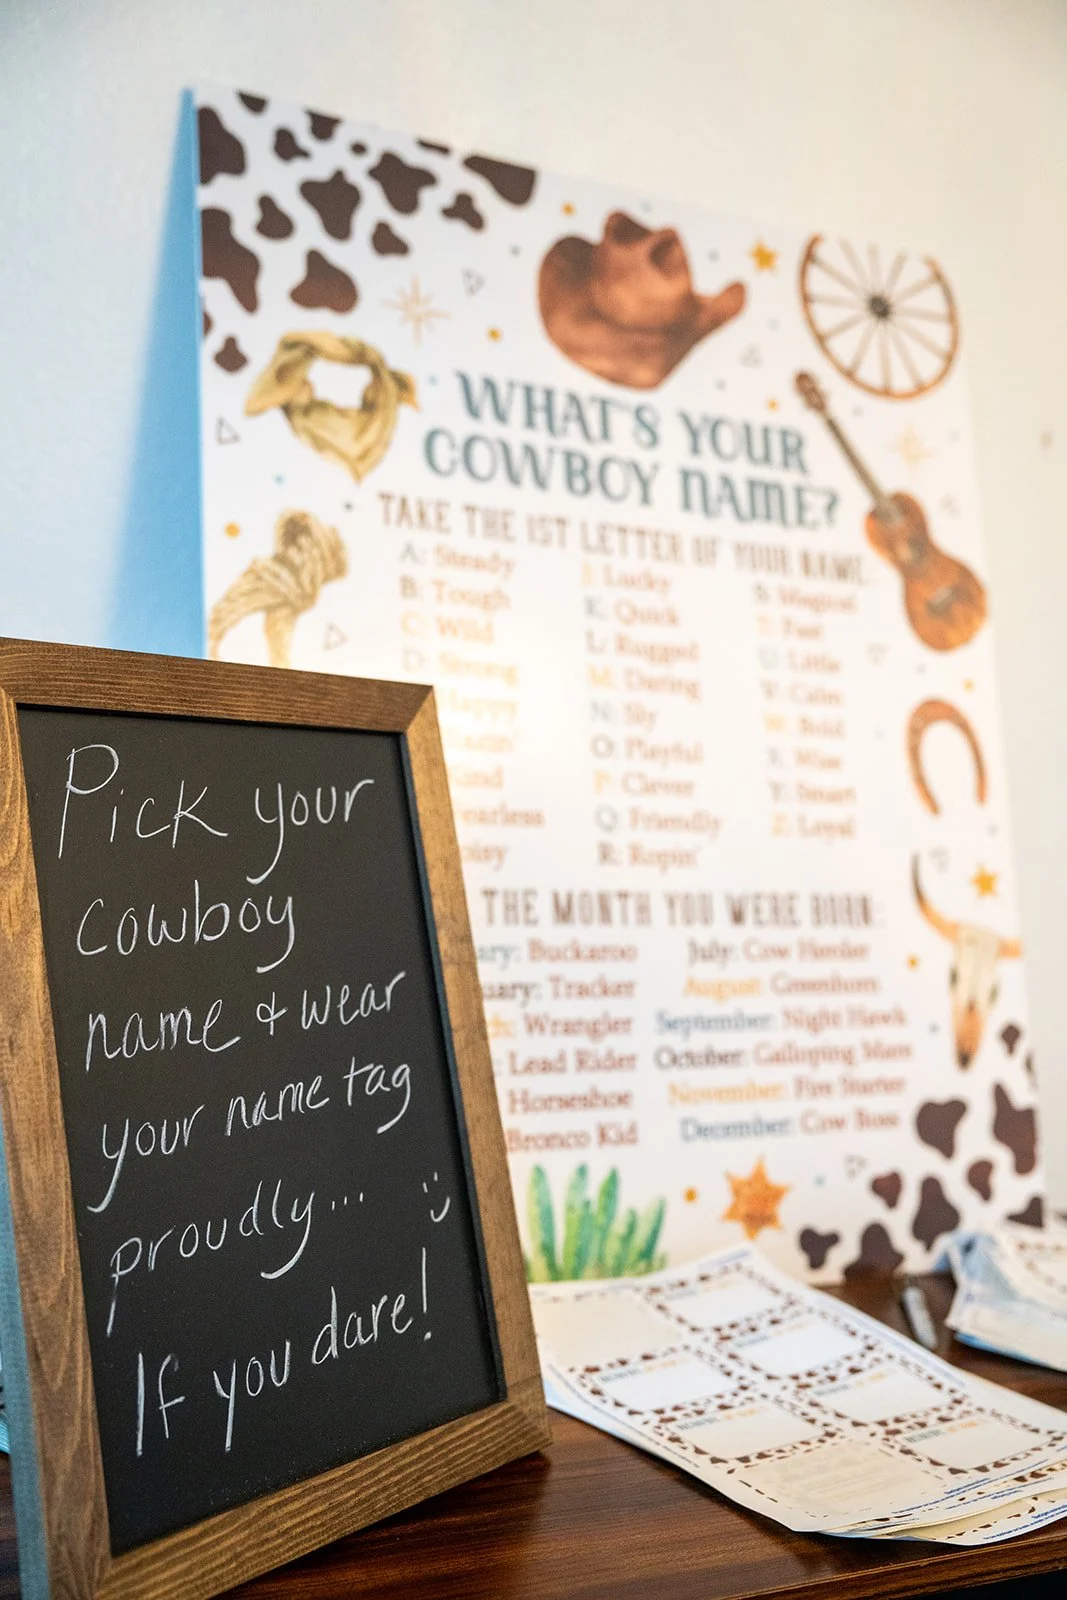 Pick your
cowboy
name & wear
your name tag
proudly... :)
If you dare!
WHAT'S YOUR
COWBOY NAME?
TAKE THE 1ST LETTER OF YOUR NAME:
A: Steady
B: Tough
C: Wild
D: Strong
J: Lucky
K: Quick
L: Rugged
M: Daring
N: Sly
O: Playful
P: Clever
Q: Friendly
R: Ropin'
S: Magical
T: Fast
U: Little
V: Calm
W: Bold
X: Wise
Y: Smart
Z: Loyal
THE MONTH YOU WERE BORN:
ary: Buckaroo
uary: Tracker
h: Wrangler
: Lead Rider
Horseshoe
Bronco Kid
July: Cow Herder
August: Greenhorn
September: Night Hawk
October: Galloping Mare
November: Fire Starter
December: Cow Boss